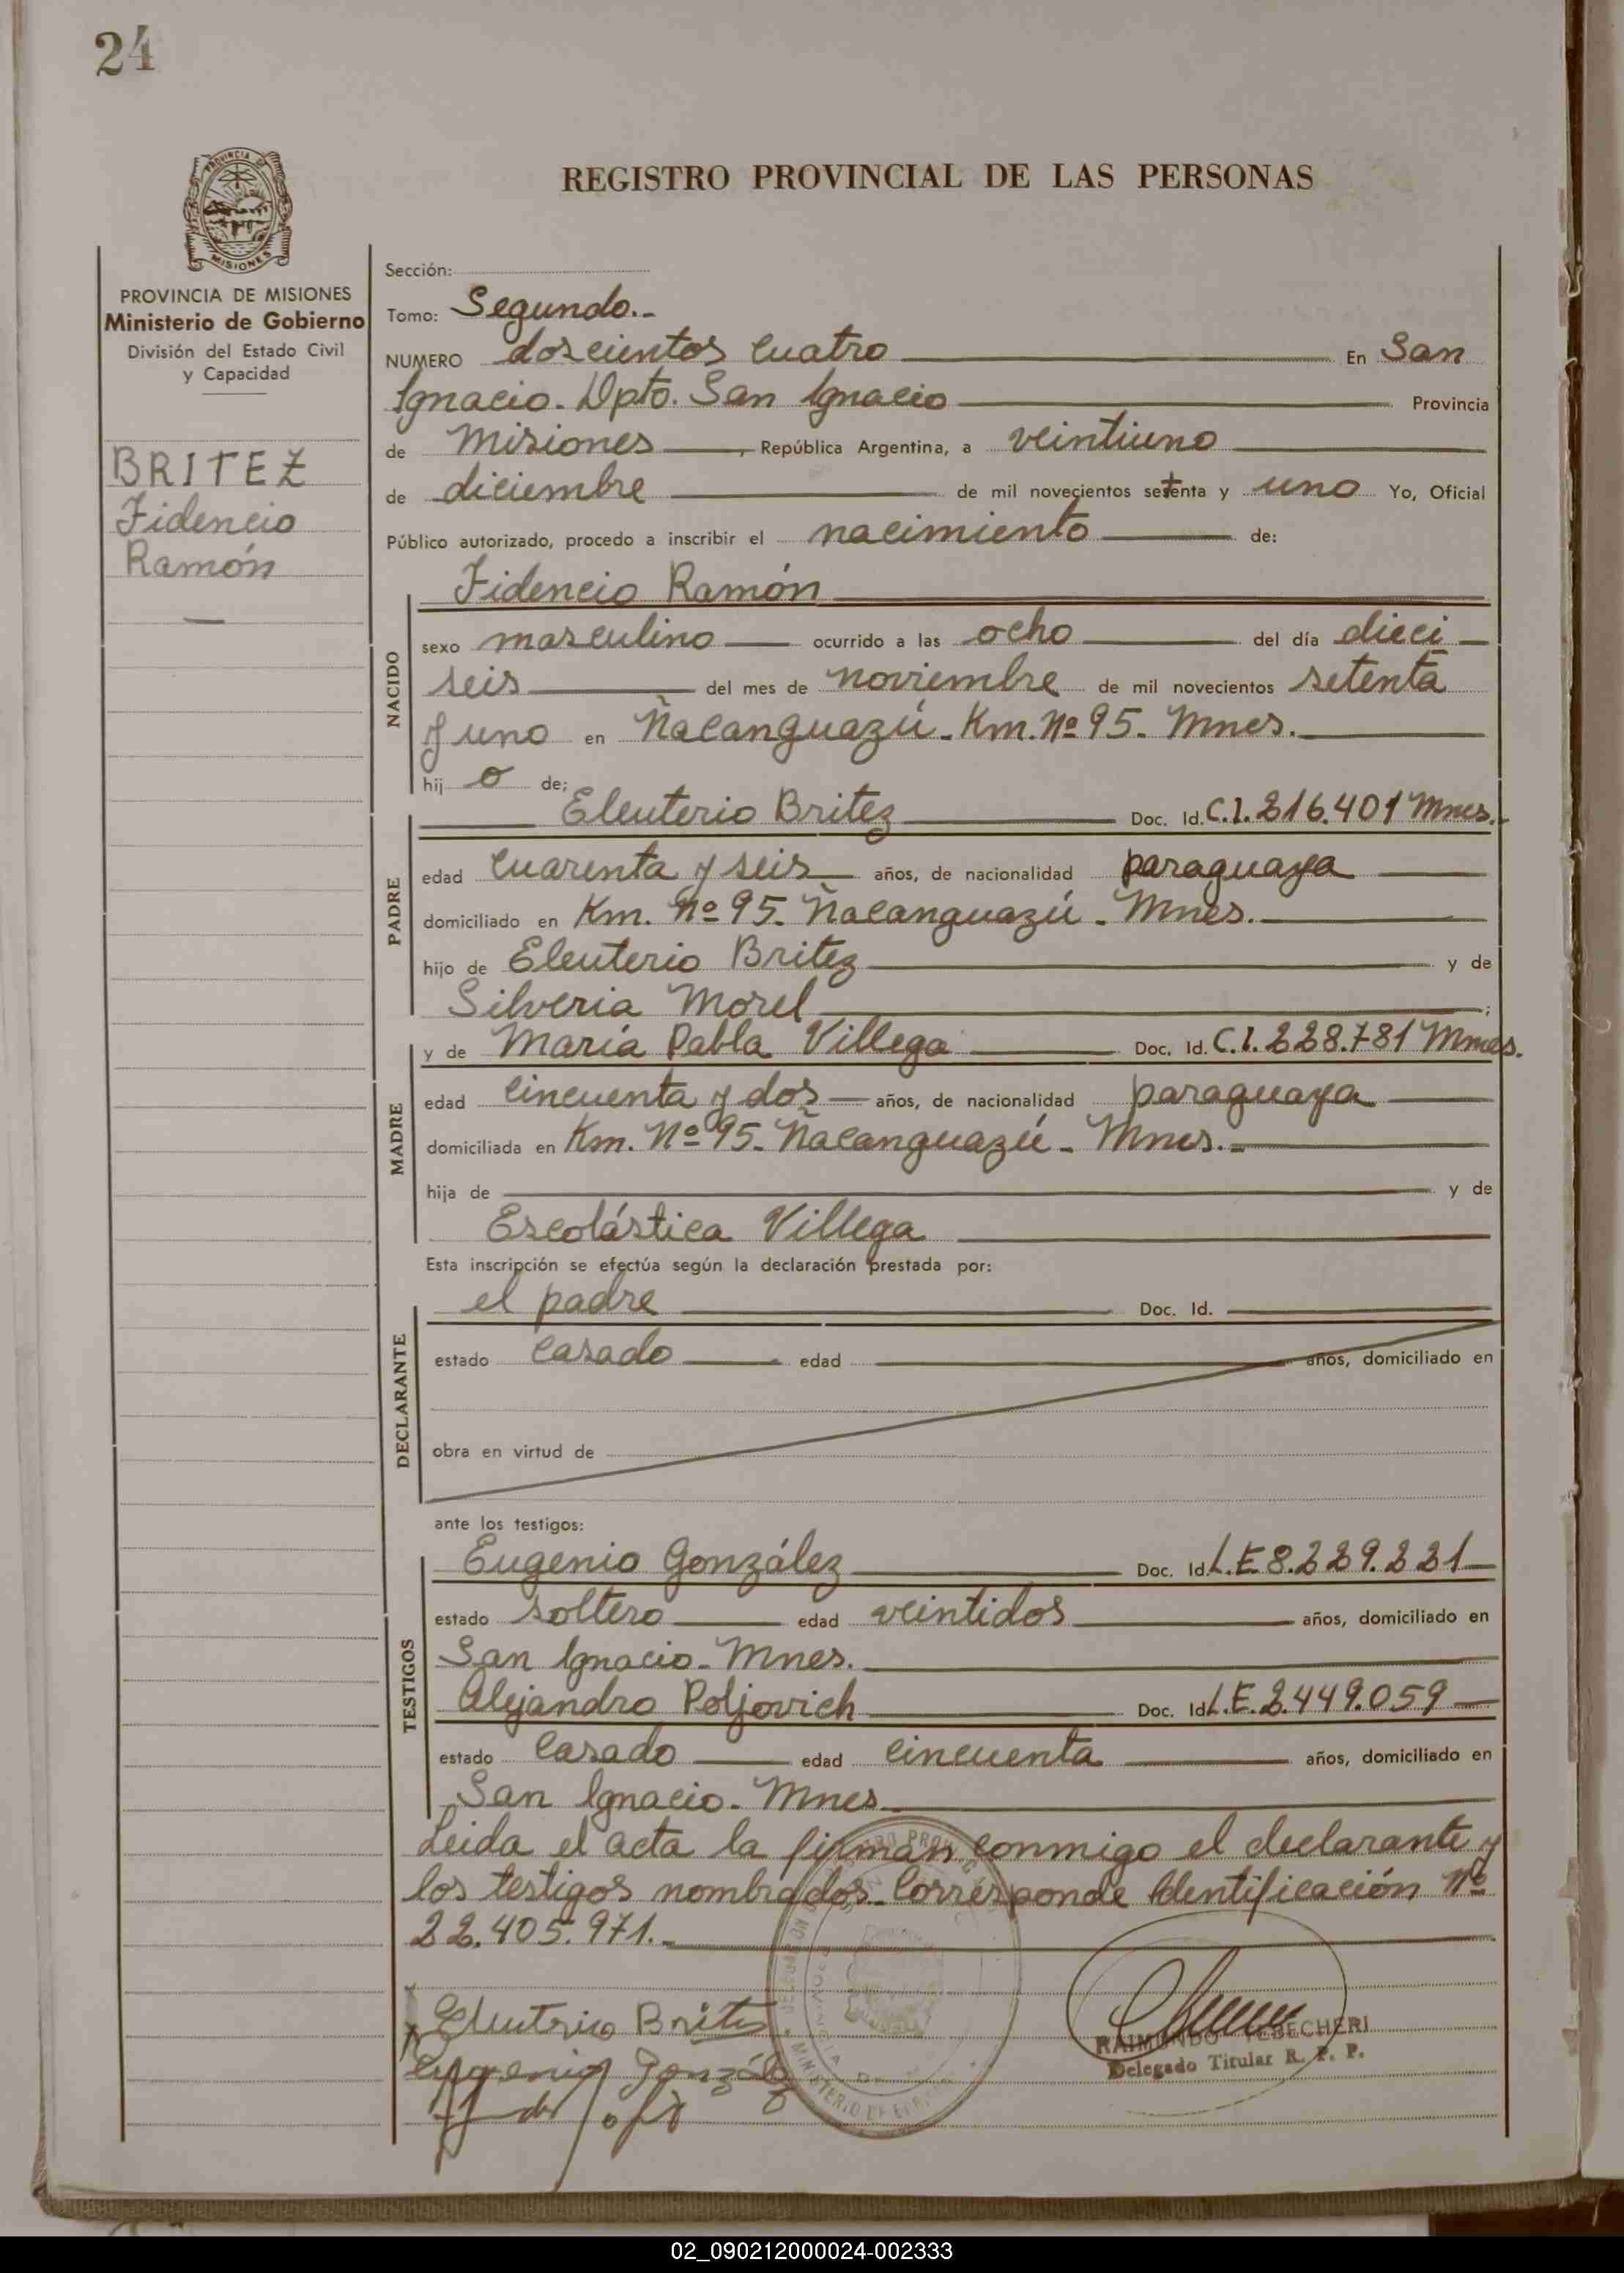 24
PROVINCIA DE
MISIONES
REGISTRO PROVINCIAL DE LAS PERSONAS
PROVINCIA DE MISIONES
Ministerio de Gobierno
División del Estado Civil
y Capacidad
BRITEZ
Fidencio
Ramón
Sección:
Tomo: Segundo.-
NUMERO doscientos cuatro En San
Ignacio. Dpto. San Ignacio Provincia
de Misiones, República Argentina, a veintiuno
de diciembre de mil novecientos setenta y uno Yo, Oficial
Público autorizado, procedo a inscribir el nacimiento de:
Fidencio Ramón
NACIDO
sexo masculino ocurrido a las ocho del día dieci
seis del mes de noviembre de mil novecientos setenta
y uno en Ñacanguazú. Km. Nº 95. Mnes.
hij o de;
Eleuterio Britez Doc. Id. C.I. 216.401 Mnes.
PADRE
edad cuarenta y seis años, de nacionalidad paraguaya
domiciliado en Km. Nº 95. Ñacanguazú. Mnes.
hijo de Eleuterio Britez y de
Silveria Morel;
y de María Pabla Villega Doc. Id. C.I. 228.781 Mnes.
MADRE
edad cincuenta y dos años, de nacionalidad paraguaya
domiciliada en Km. Nº 95. Ñacanguazú. Mnes.-
hija de y de
Escolástica Villega
Esta inscripción se efectúa según la declaración prestada por:
el padre Doc. Id.
DECLARANTE
estado casado edad años, domiciliado en
obra en virtud de
ante los testigos:
Eugenio González Doc. Id. L.E. 8.229.221
TESTIGOS
estado soltero edad veintidos años, domiciliado en
San Ignacio. Mnes.
Alejandro Poljovich Doc. Id. L.E. 2.449.059
estado casado edad cincuenta años, domiciliado en
San Ignacio. Mnes.
Leida el acta la firman conmigo el declarante y
los testigos nombrados. Corresponde Identificación Nº
22.405.971.-
Eleuterio Britez
Eugenio González
RAIMUNDO TEBECHERI
Delegado Titular R. P. P.
02_090212000024-002333